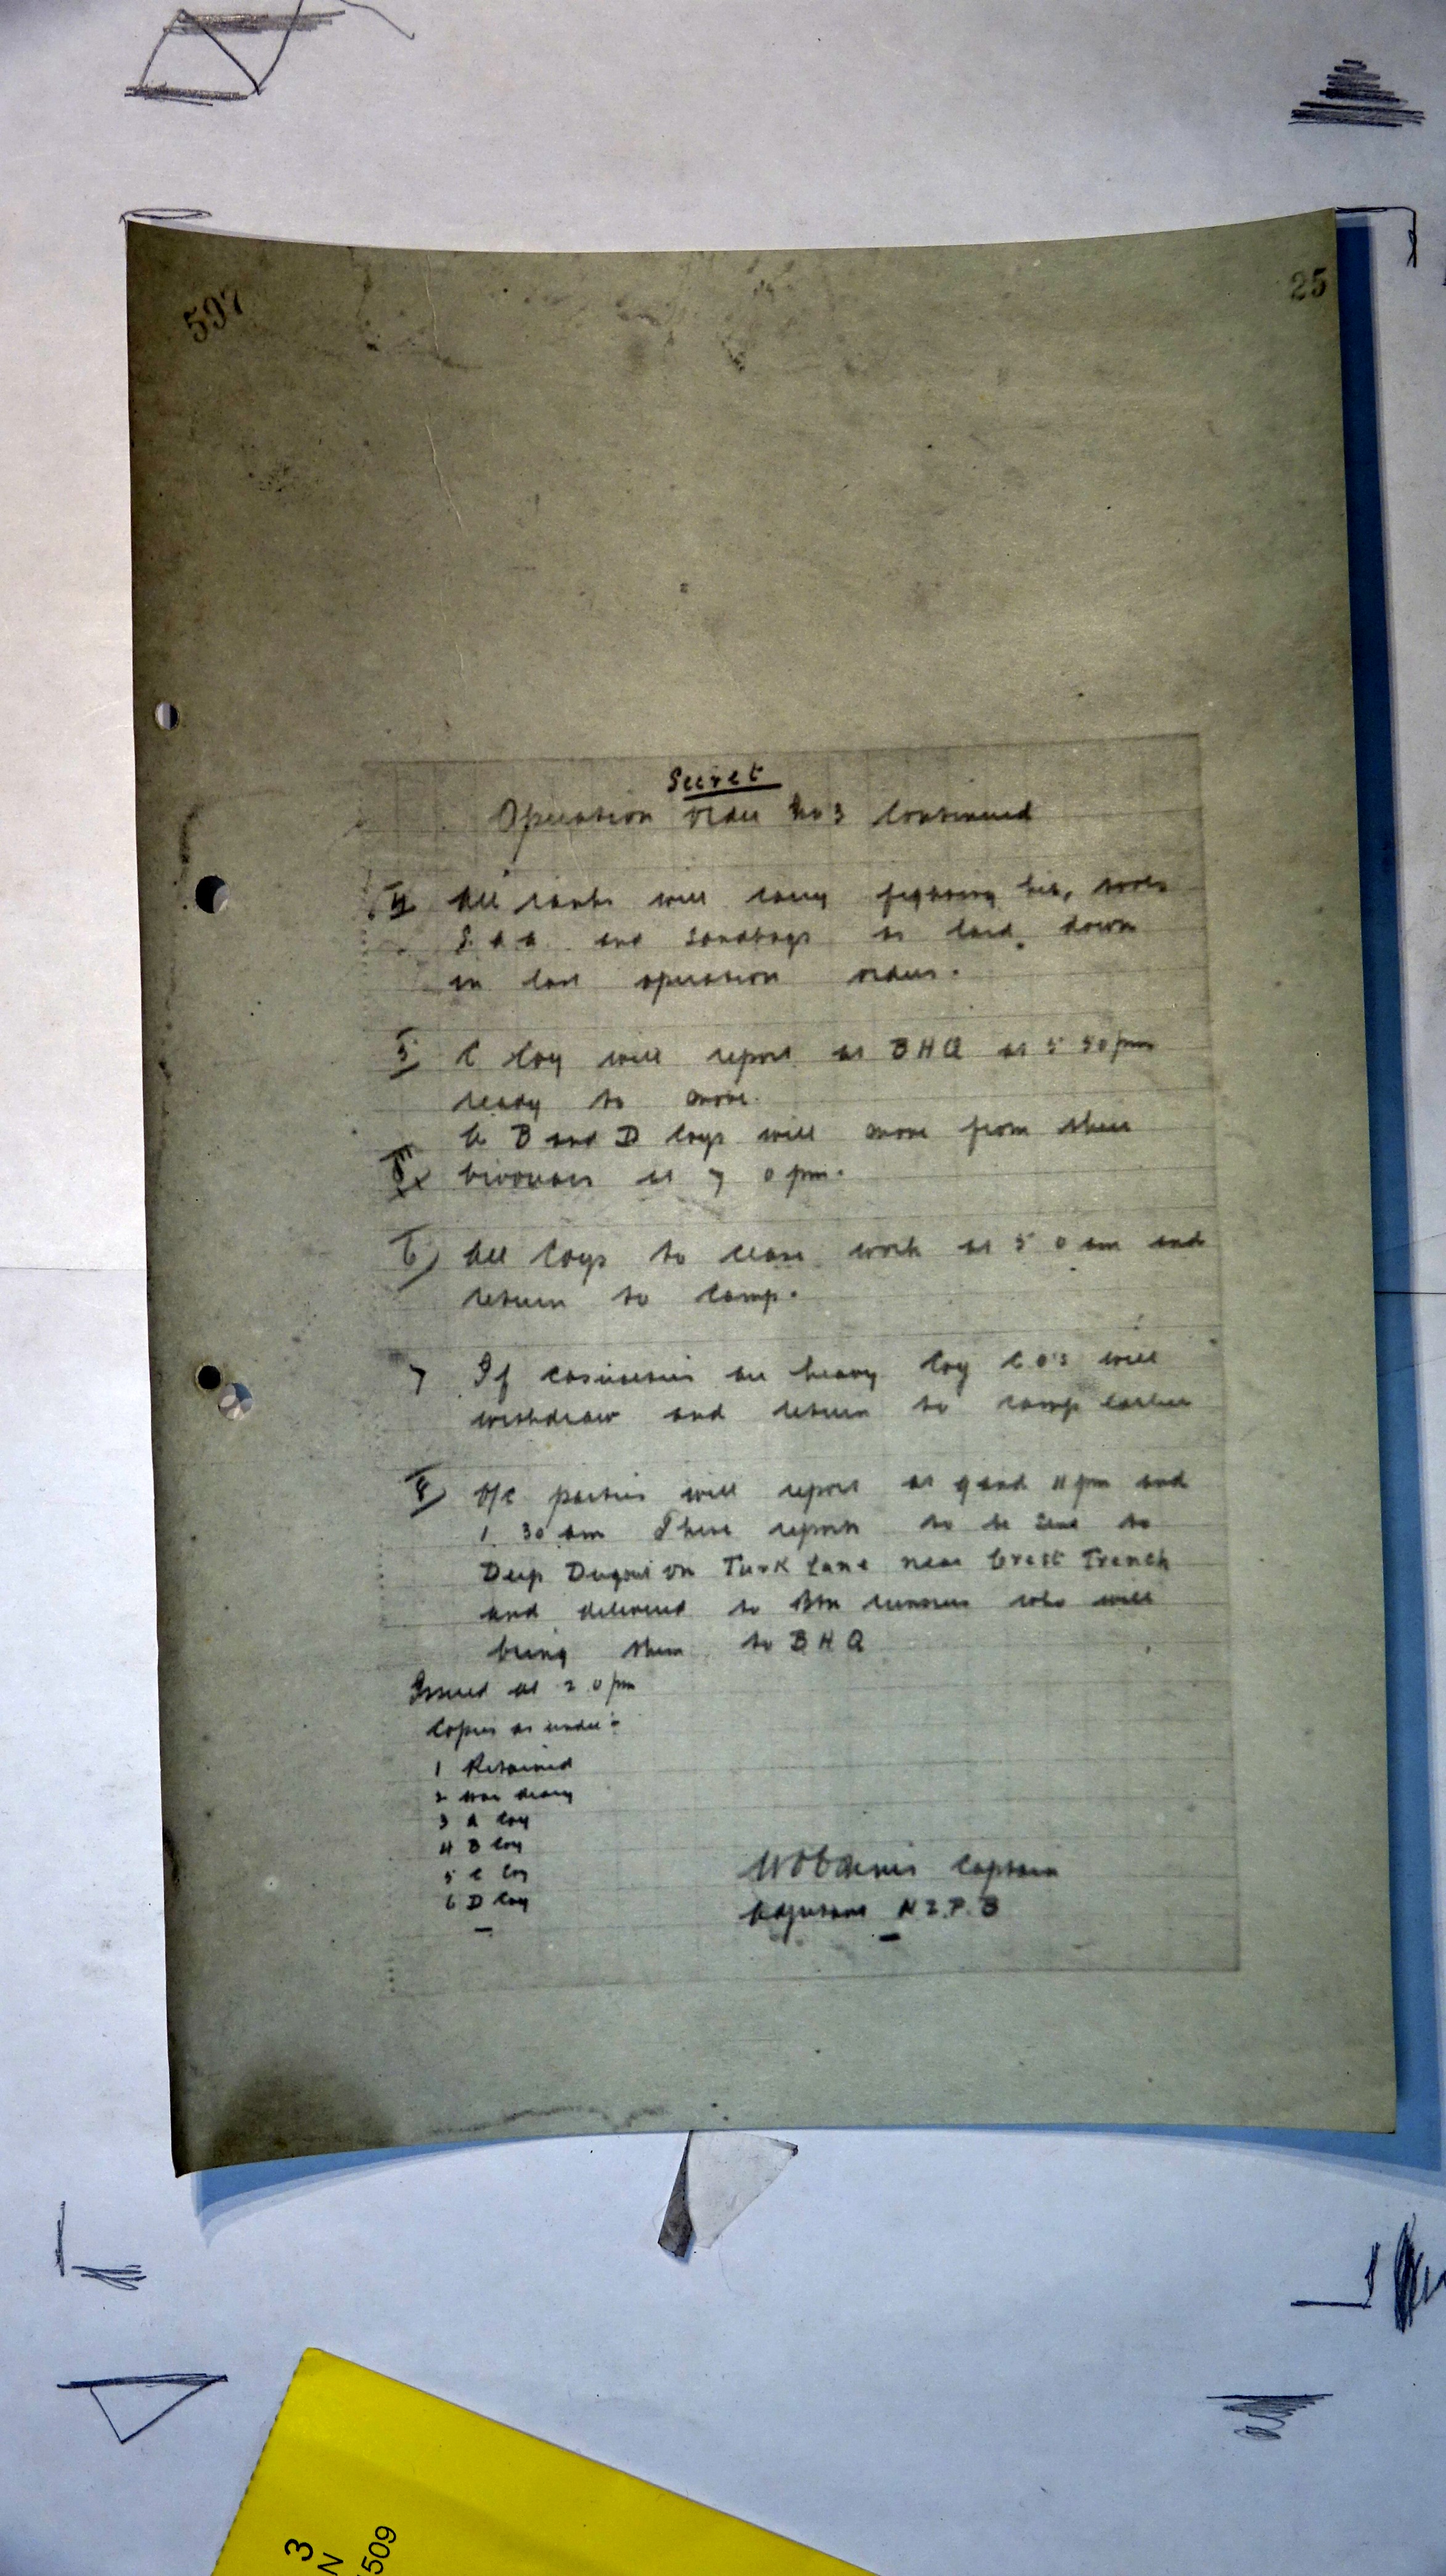 597
25
Secret
Operation Order No 3 Continued
4 All ranks will carry fighting kit, tools
S.A.A. and Sandbags as laid down
in last operation orders.
5 C Coy will report at BHQ at 5 50 pm
ready to move.
A B and D Coys will move from their
bivouacs at 7 0 pm.
6) All Coys to cease work at 5 0 am and
return to Camp.
7 If casualties are heavy Coy C.O's will
withdraw and return to camp earlier
8) O/C parties will report at 9 and 11 pm and
1 30 am These reports to be sent to
Deep Dugout on Turk Lane near Crest Trench
and delivered to Btn runners who will
bring them to BHQ
Issued at 2.0 pm
Copies as under:-
1 Retained
2 War diary
3 A Coy
4 B Coy
5 C Coy
6 D Coy
Captain
Adjutant N Z.P.B
3
N
509